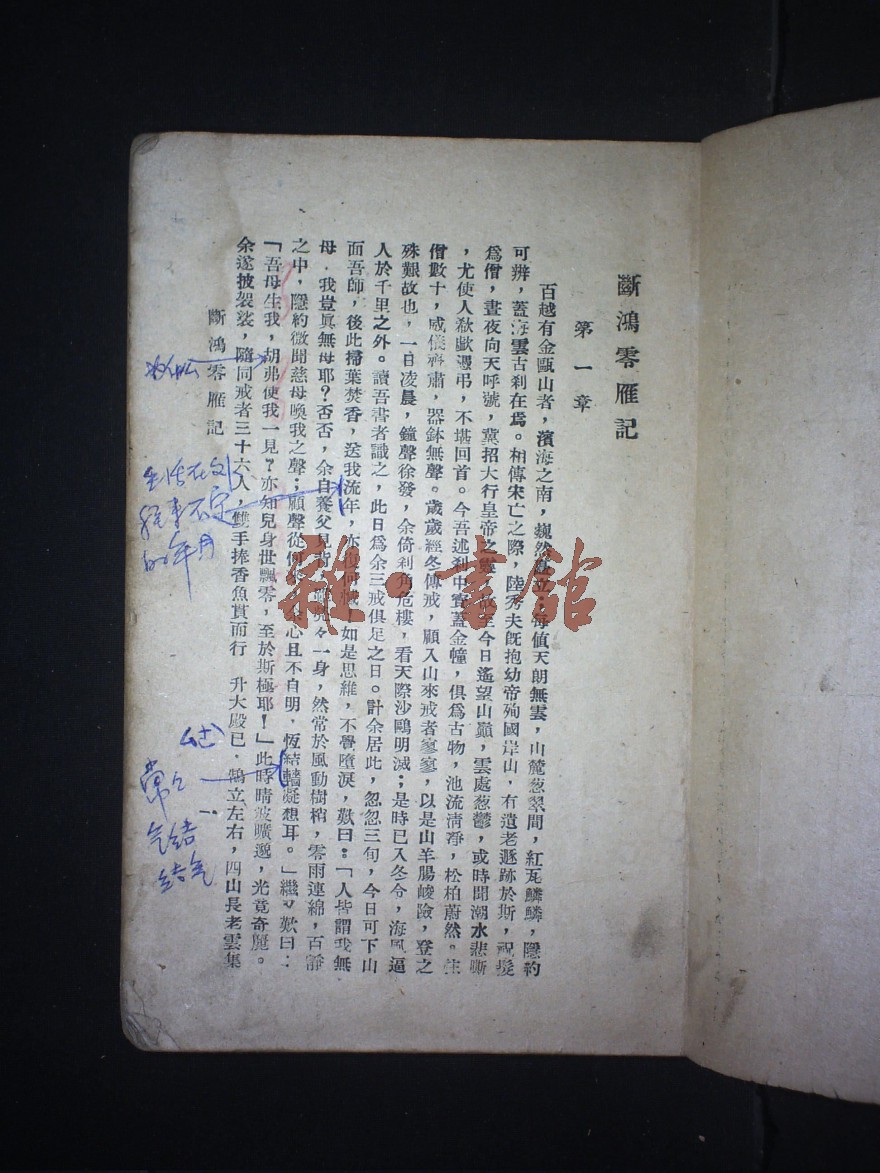 斷鴻零雁記
第一章
百越有金甌山者，濱海之南，巍然矗立；每值天朗無雲，山麓葱翠間，紅瓦鱗鱗，隱約
可辨，蓋海雲古刹在焉。相傳宋亡之際，陸秀夫旣抱幼帝殉國崖山，有遺老遯跡於斯，祝髮
爲僧，晝夜向天呼號，冀招大行皇帝之靈。故至今日遙望山巔，雲處葱鬱，或時聞潮水悲嘶
，尤使人欷歔憑弔，不堪回首。今吾述刹中寶蓋金幢，俱爲古物，池流清淨，松柏蔚然。住
僧數十，威儀齊肅，器鉢無聲。歲歲經冬傳戒，顧入山來戒者寥寥，以是山羊腸峻險，登之
殊艱故也，一日凌晨，鐘聲徐發，余倚刹角危樓，看天際沙鷗明滅；是時已入冬令，海風逼
人於千里之外。讀吾書者識之，此日爲余三戒俱足之日。計余居此，忽忽三旬，今日可下山
面吾師，後此掃葉焚香，送我流年，亦復何憾！如是思維，不覺墮淚，歎曰：「人皆謂我無
母，我豈眞無母耶？否否，余自養父見背，雖煢々一身，然常於風動樹梢，零雨連綿，百靜
之中，隱約微聞慈母喚我之聲；顧聲從何來，余心且不自明，恆結轖凝想耳。」繼又歎曰：
「吾母生我，胡弗使我一見？亦知兒身世飄零，至於斯極耶！」此時晴波曠邈，光竟奇麗。
余遂披袈裟，隨同戒者三十六人，雙手捧香魚貫而行 升大殿已 鵠立左右，四山長老雲集
斷鴻零雁記
一
的年月
常々
气结
结气
雜·書館